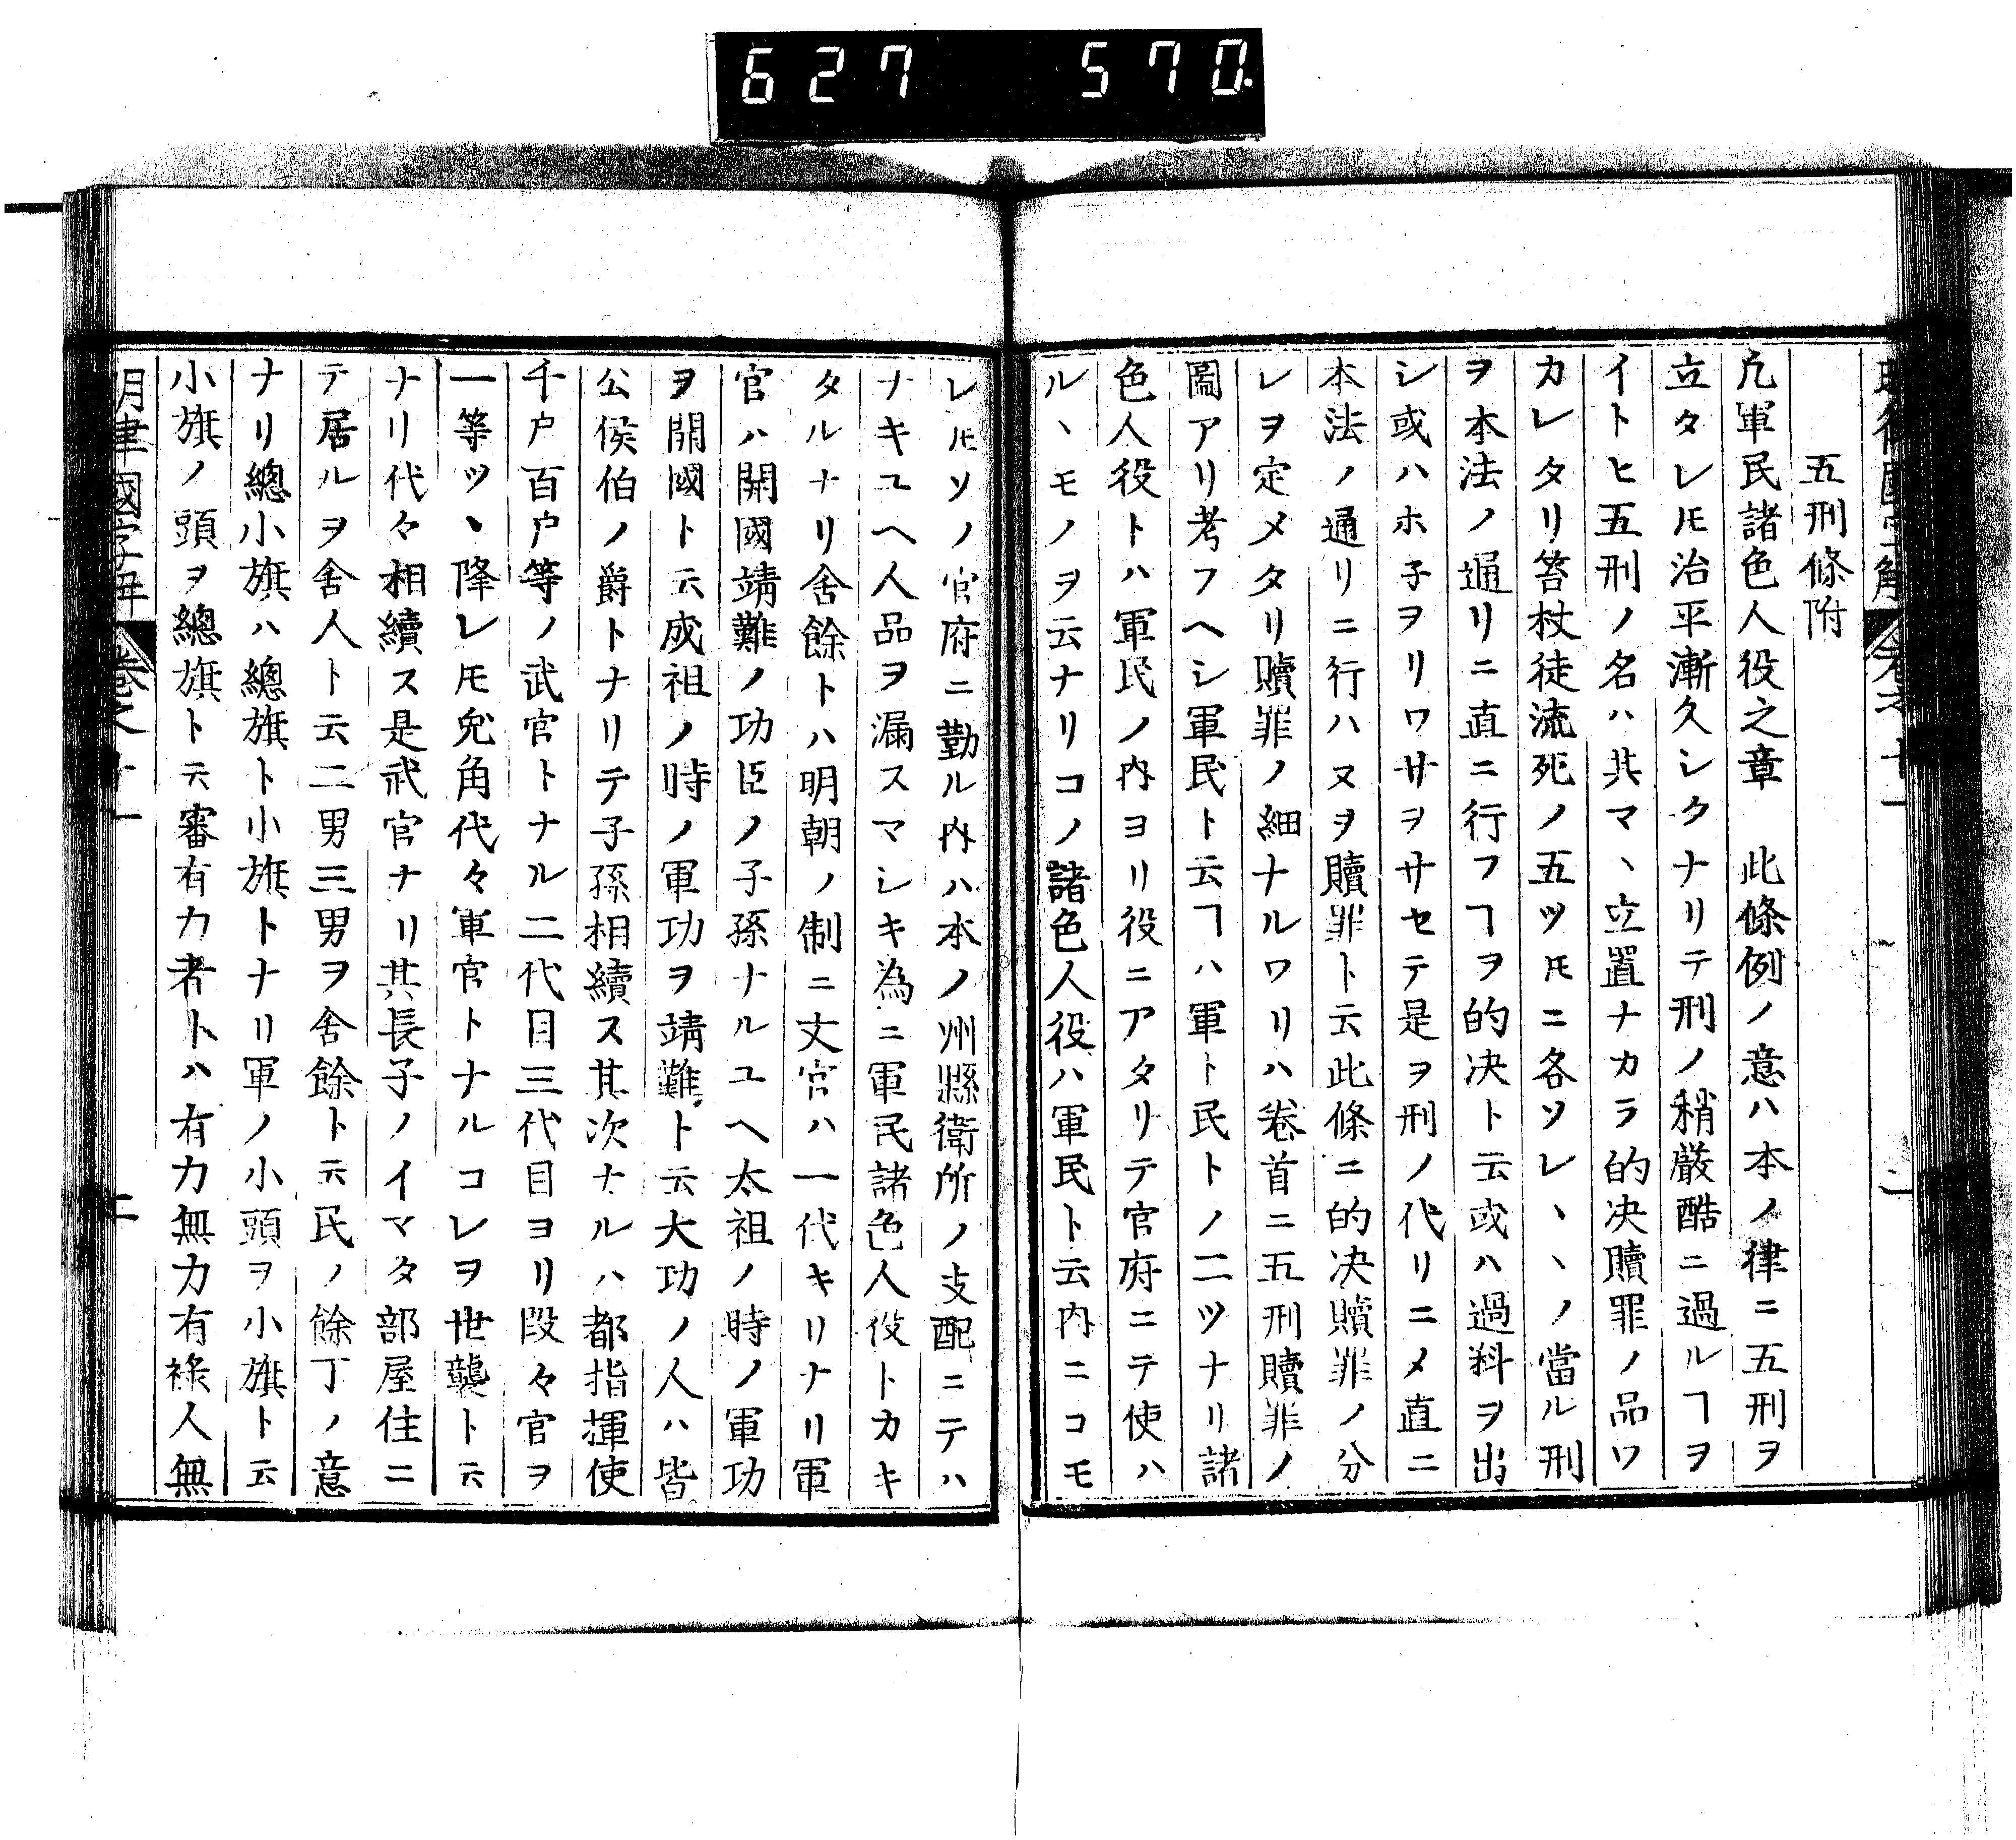 627 570
五刑條附
凢軍民諸色人役之章　此條例ノ意ハ本ノ律ニ五刑ヲ
立タレ𪜈治平漸久シクナリテ刑ノ稍嚴酷ニ過ルヿヲ
イトヒ五刑ノ名ハ其マヽ立置ナカラ的决贖罪ノ品ワ
カレタリ笞杖徒流死ノ五ツ𪜈ニ各ソレヽヽノ當ル刑
ヲ本法ノ通リニ直ニ行フヿヲ的决ト云或ハ過料ヲ出
シ或ハホ子ヲリワサヲサセテ是ヲ刑ノ代リニメ直ニ
本法ノ通リニ行ハヌヲ贖罪ト云此條ニ的决贖罪ノ分
レヲ定メタリ贖罪ノ細ナルワリハ卷首ニ五刑贖罪ノ
圖アリ考フヘシ軍民ト云ヿハ軍ト民トノ二ツナリ諸
色人役トハ軍民ノ内ヨリ役ニアタリテ官府ニテ使ハ
ルヽモノヲ云ナリコノ諸色人役ハ軍民ト云内ニコモ
レ𪜈ソノ官府ニ勤ル内ハ本ノ州縣衛所ノ支配ニテハ
ナキユヘ人品ヲ漏スマシキ為ニ軍民諸色人役トカキ
タルナリ舍餘トハ明朝ノ制ニ文官ハ一代キリナリ軍
官ハ開國靖難ノ功臣ノ子孫ナルユヘ太祖ノ時ノ軍功
ヲ開國ト云成祖ノ時ノ軍功ヲ靖難ト云大功ノ人ハ皆
公侯伯ノ爵トナリテ子孫相續ス其次ナルハ都指揮使
千戸百戸等ノ武官トナル二代目三代目ヨリ段々官ヲ
一等ツヽ降レ𪜈兎角代々軍官トナルコレヲ世襲ト云
ナリ代々相續ス是武官ナリ其長子ノイマタ部屋住ニ
テ居ルヲ舍人ト云二男三男ヲ舍餘ト云民ノ餘丁ノ意
ナリ總小旗ハ總旗ト小旗トナリ軍ノ小頭ヲ小旗ト云
小旗ノ頭ヲ總旗ト云審有力者トハ有力無力有祿人無
明律國字解　卷之十一　二